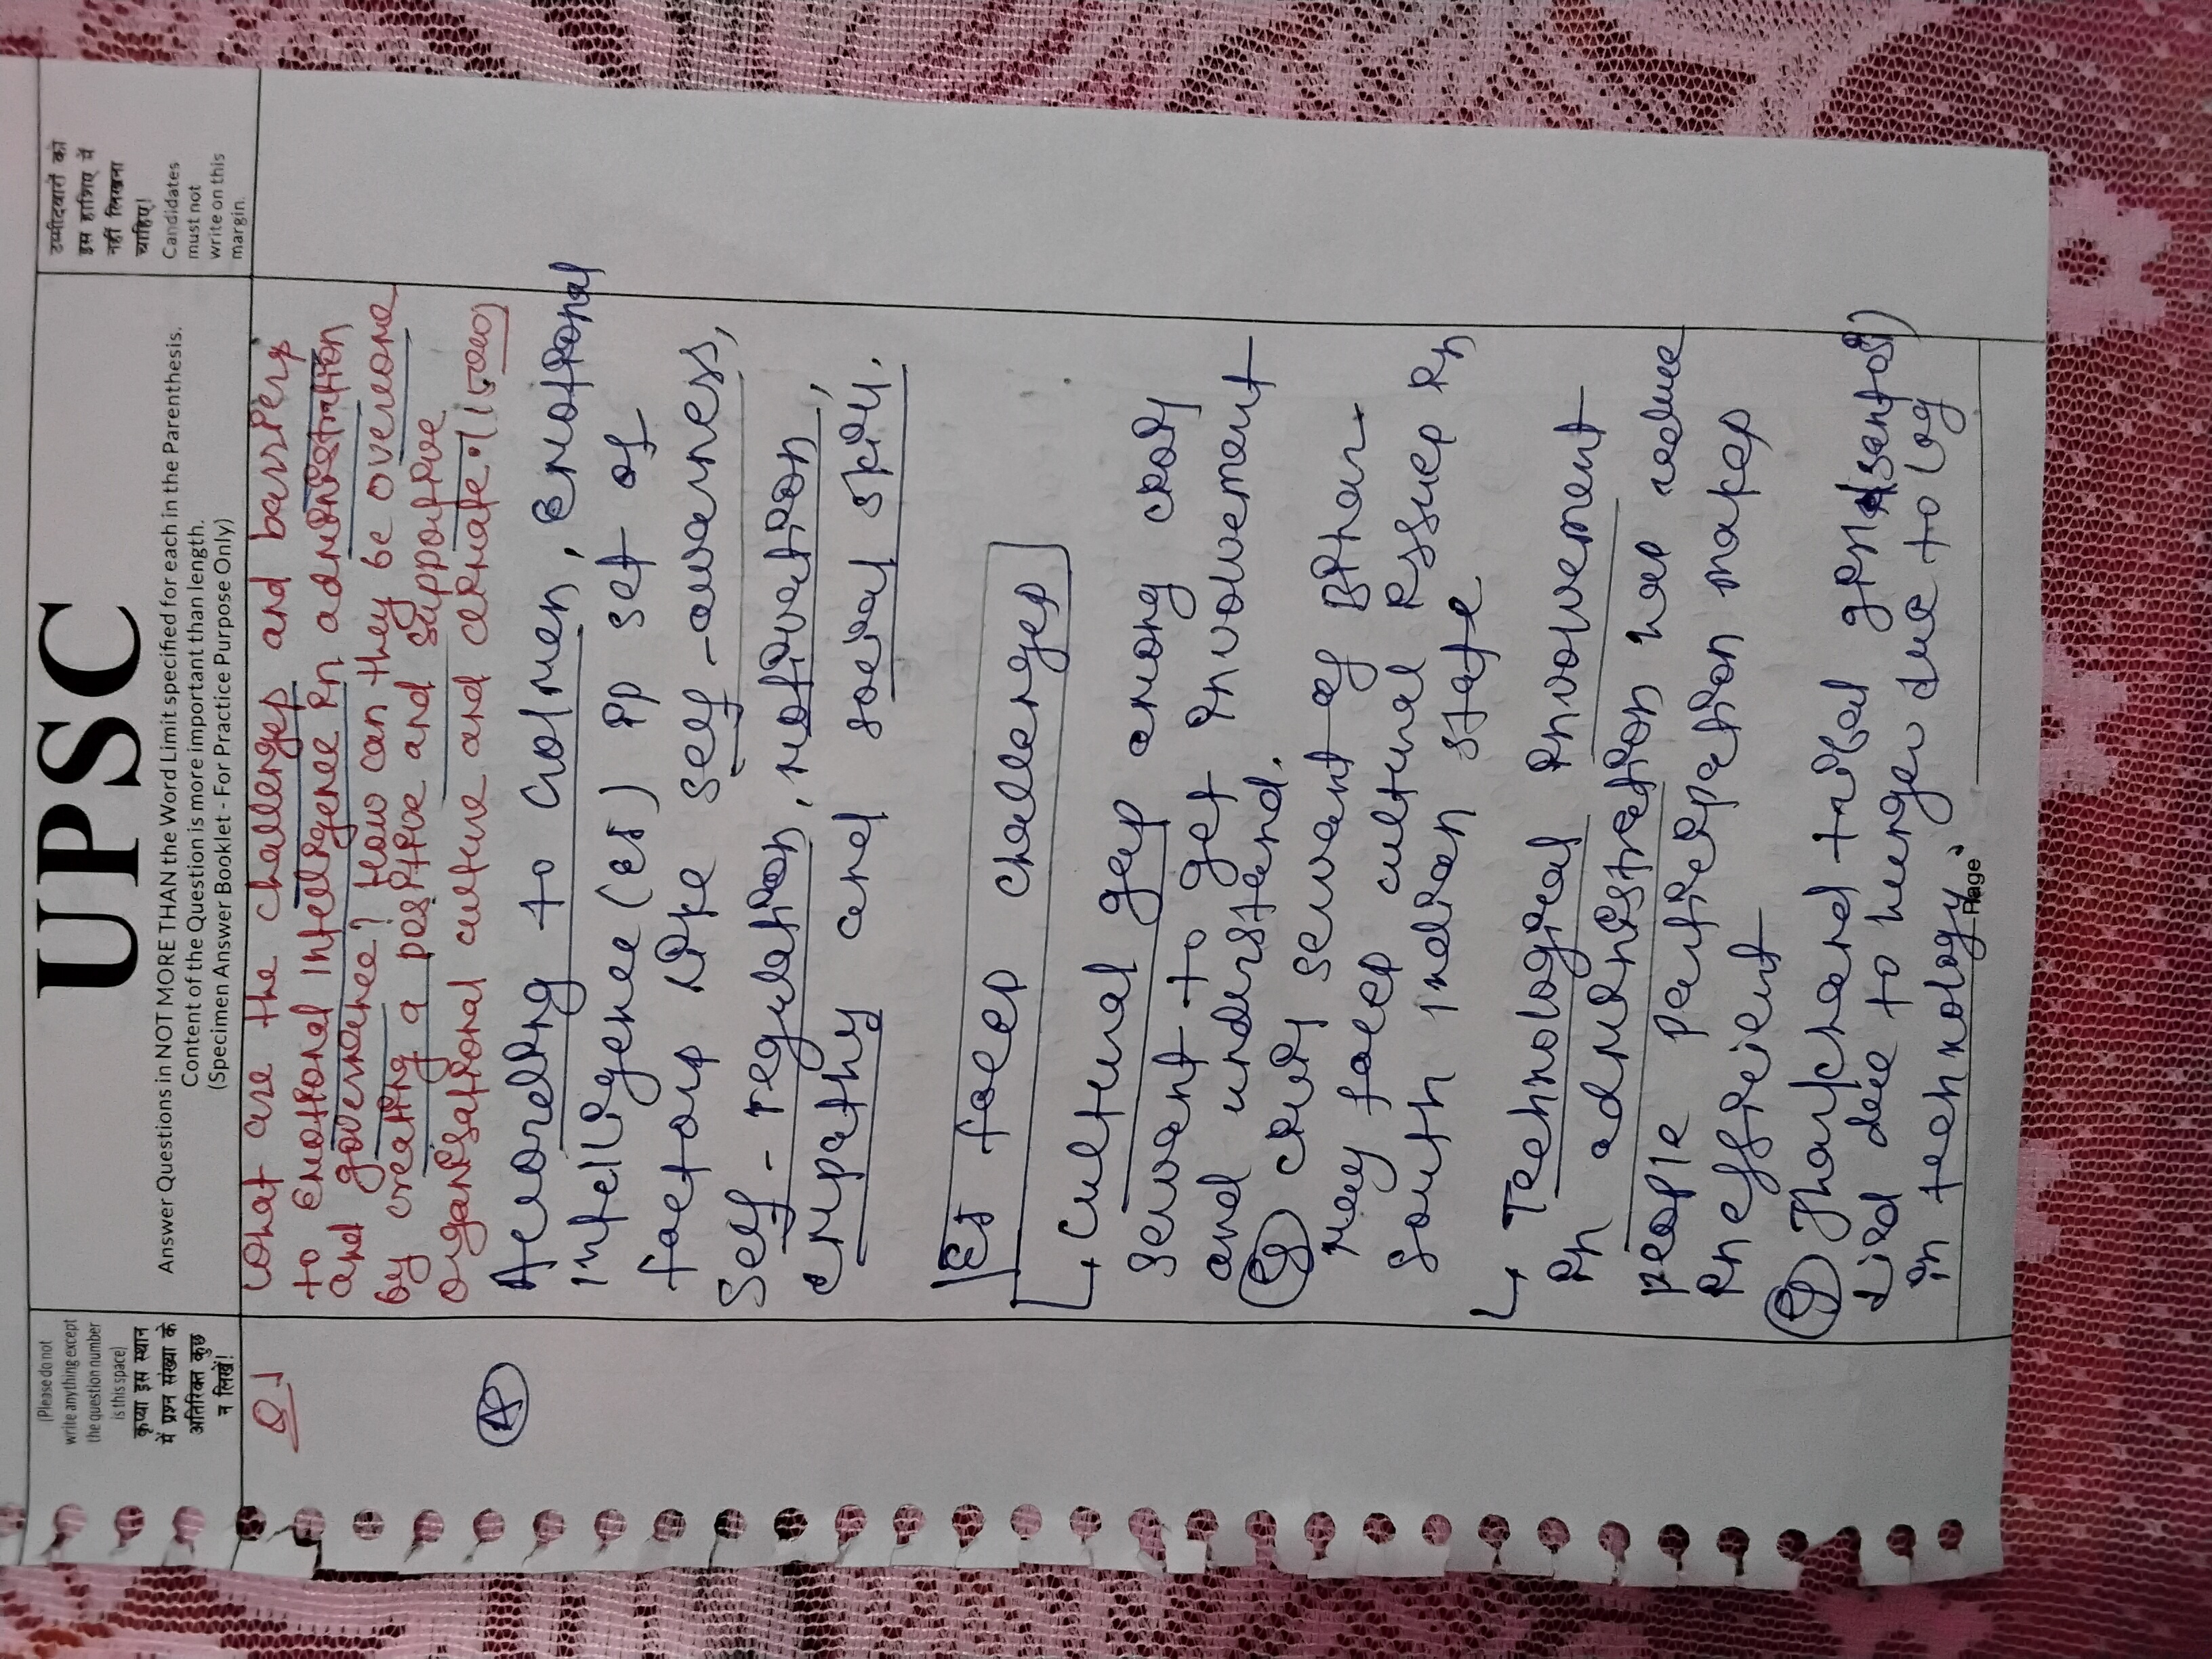 (Please do not
write anything except
the question number
is this space)
कृप्या इस स्थान
में प्रश्न संख्या के
अतिरिक्त कुछ
न लिखें!
UPSC
Answer Questions in NOT MORE THAN the Word Limit specified for each in the Parenthesis.
Content of the Question is more important than length.
(Specimen Answer Booklet - For Practice Purpose Only)
उम्मीदवारों को
इस हाशिए में
नहीं लिखना
चाहिए!
Candidates
must not
write on this
margin.
Q1
What are the challenges and barriers
to Emotional Intelligence in administration
and governence? How can they be overcome
by creating a positive and supportive
organisational culture and climate. (150W)
A
According to Golmen, Emotional
Intelligence (EI) is set of
factors like self-awareness,
self-regulation, motivation,
empathy and social skill.
EI faces challenges
Cultural gap among civil
servant to get involvement
and understand.
Eg Civil servant of Bihar
may faces cultural issues in
South Indian state
Technological involvement
in administration has reduce
people participation makes
inefficient
Eg Jharkhand tribal girl (Santoshi)
died due to hunger due to lag
in technology.
Page